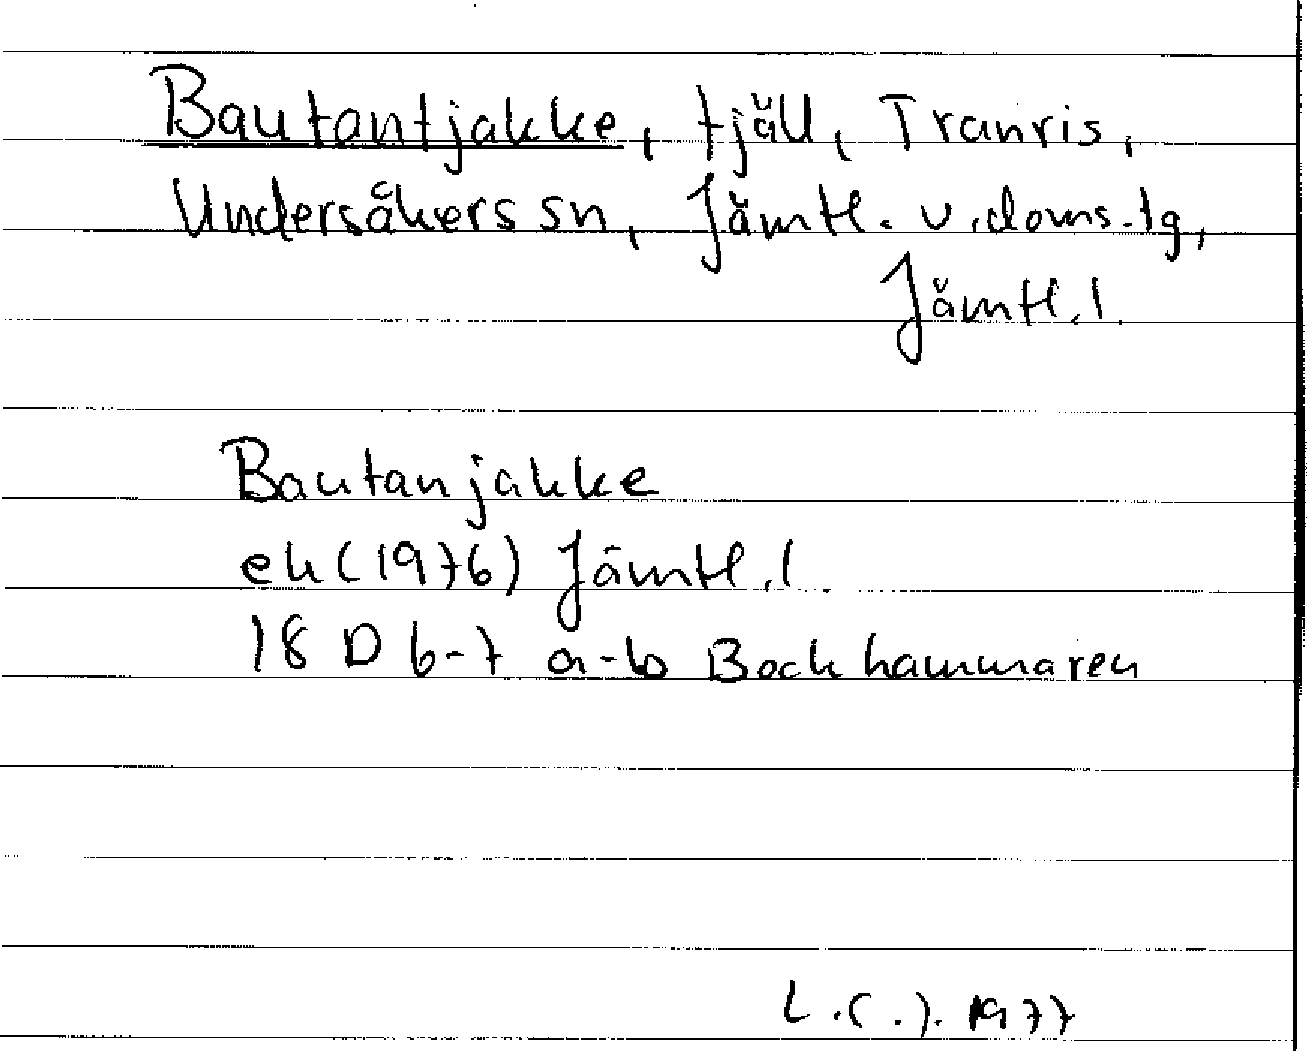 Bautantjakke, fjäll, Tranris,
Undersåkers sn, Jämtl. v. doms.tg,
Jämtl. l.
Bautanjakke
ek (1976) Jämtl. l.
18 D 6-7 a-b Bockhammaren
L.(.). 1977